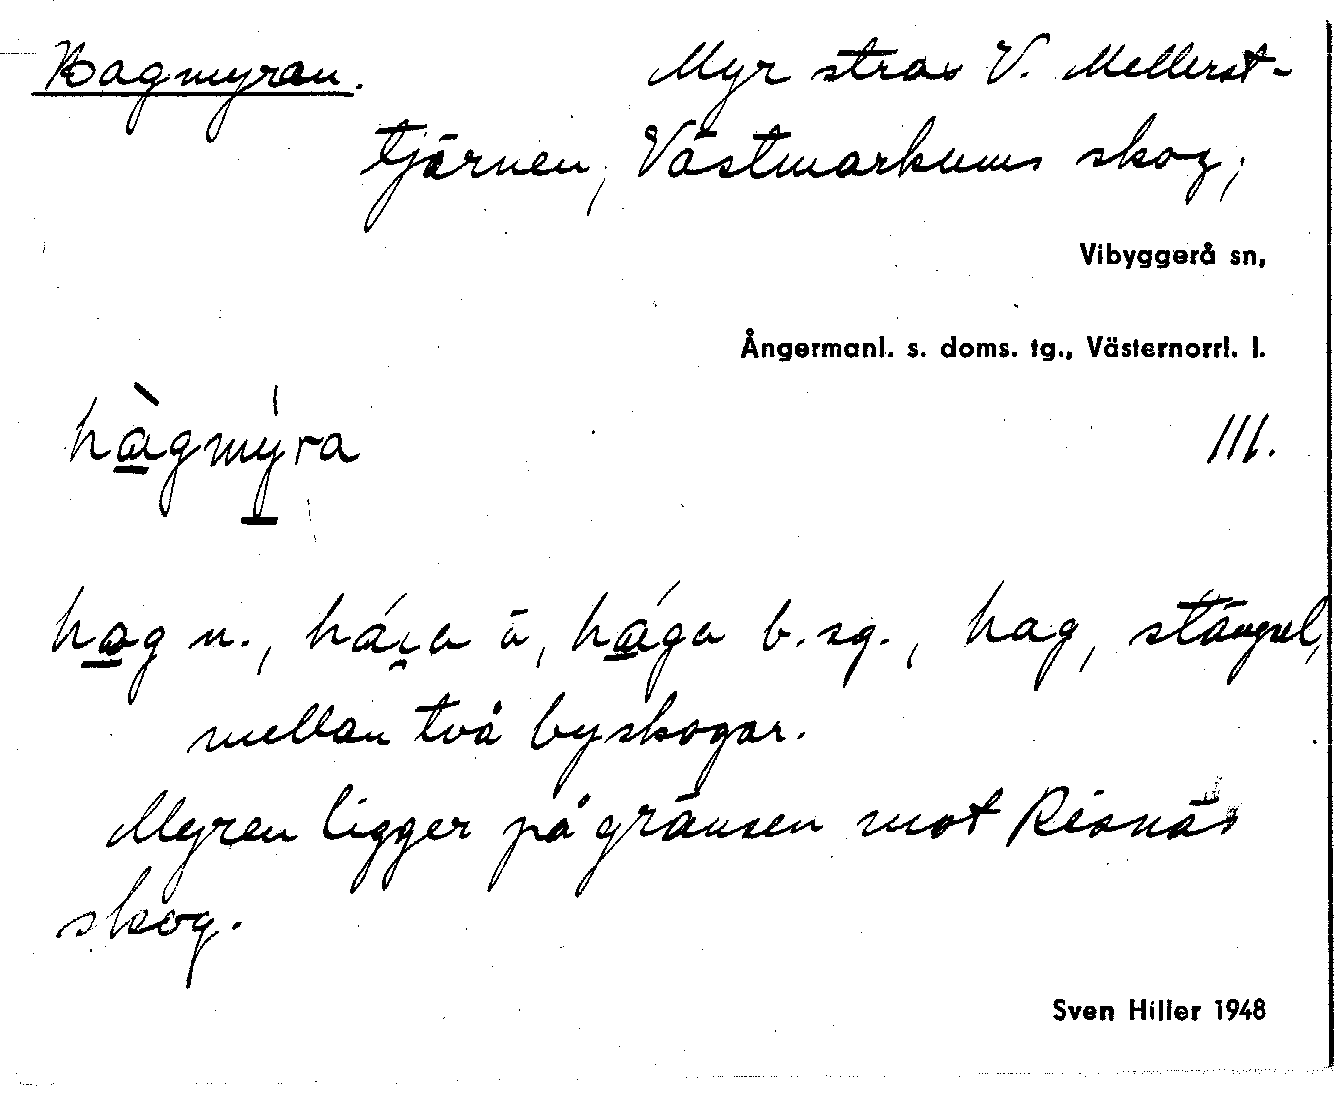 Hagmyran. Myr strax V. Mellerst-
tjärnen, Västmarkums skog,
Vibyggerå sn,
Ångermanl. s. doms. tg., Västernorrl. l.
hàgmýra III.
hag n., há a, hága b. sg., hag, stängsel,
mellan två byskogar.
Myren ligger på gränsen mot Risnäs
skog.
Sven Hiller 1948